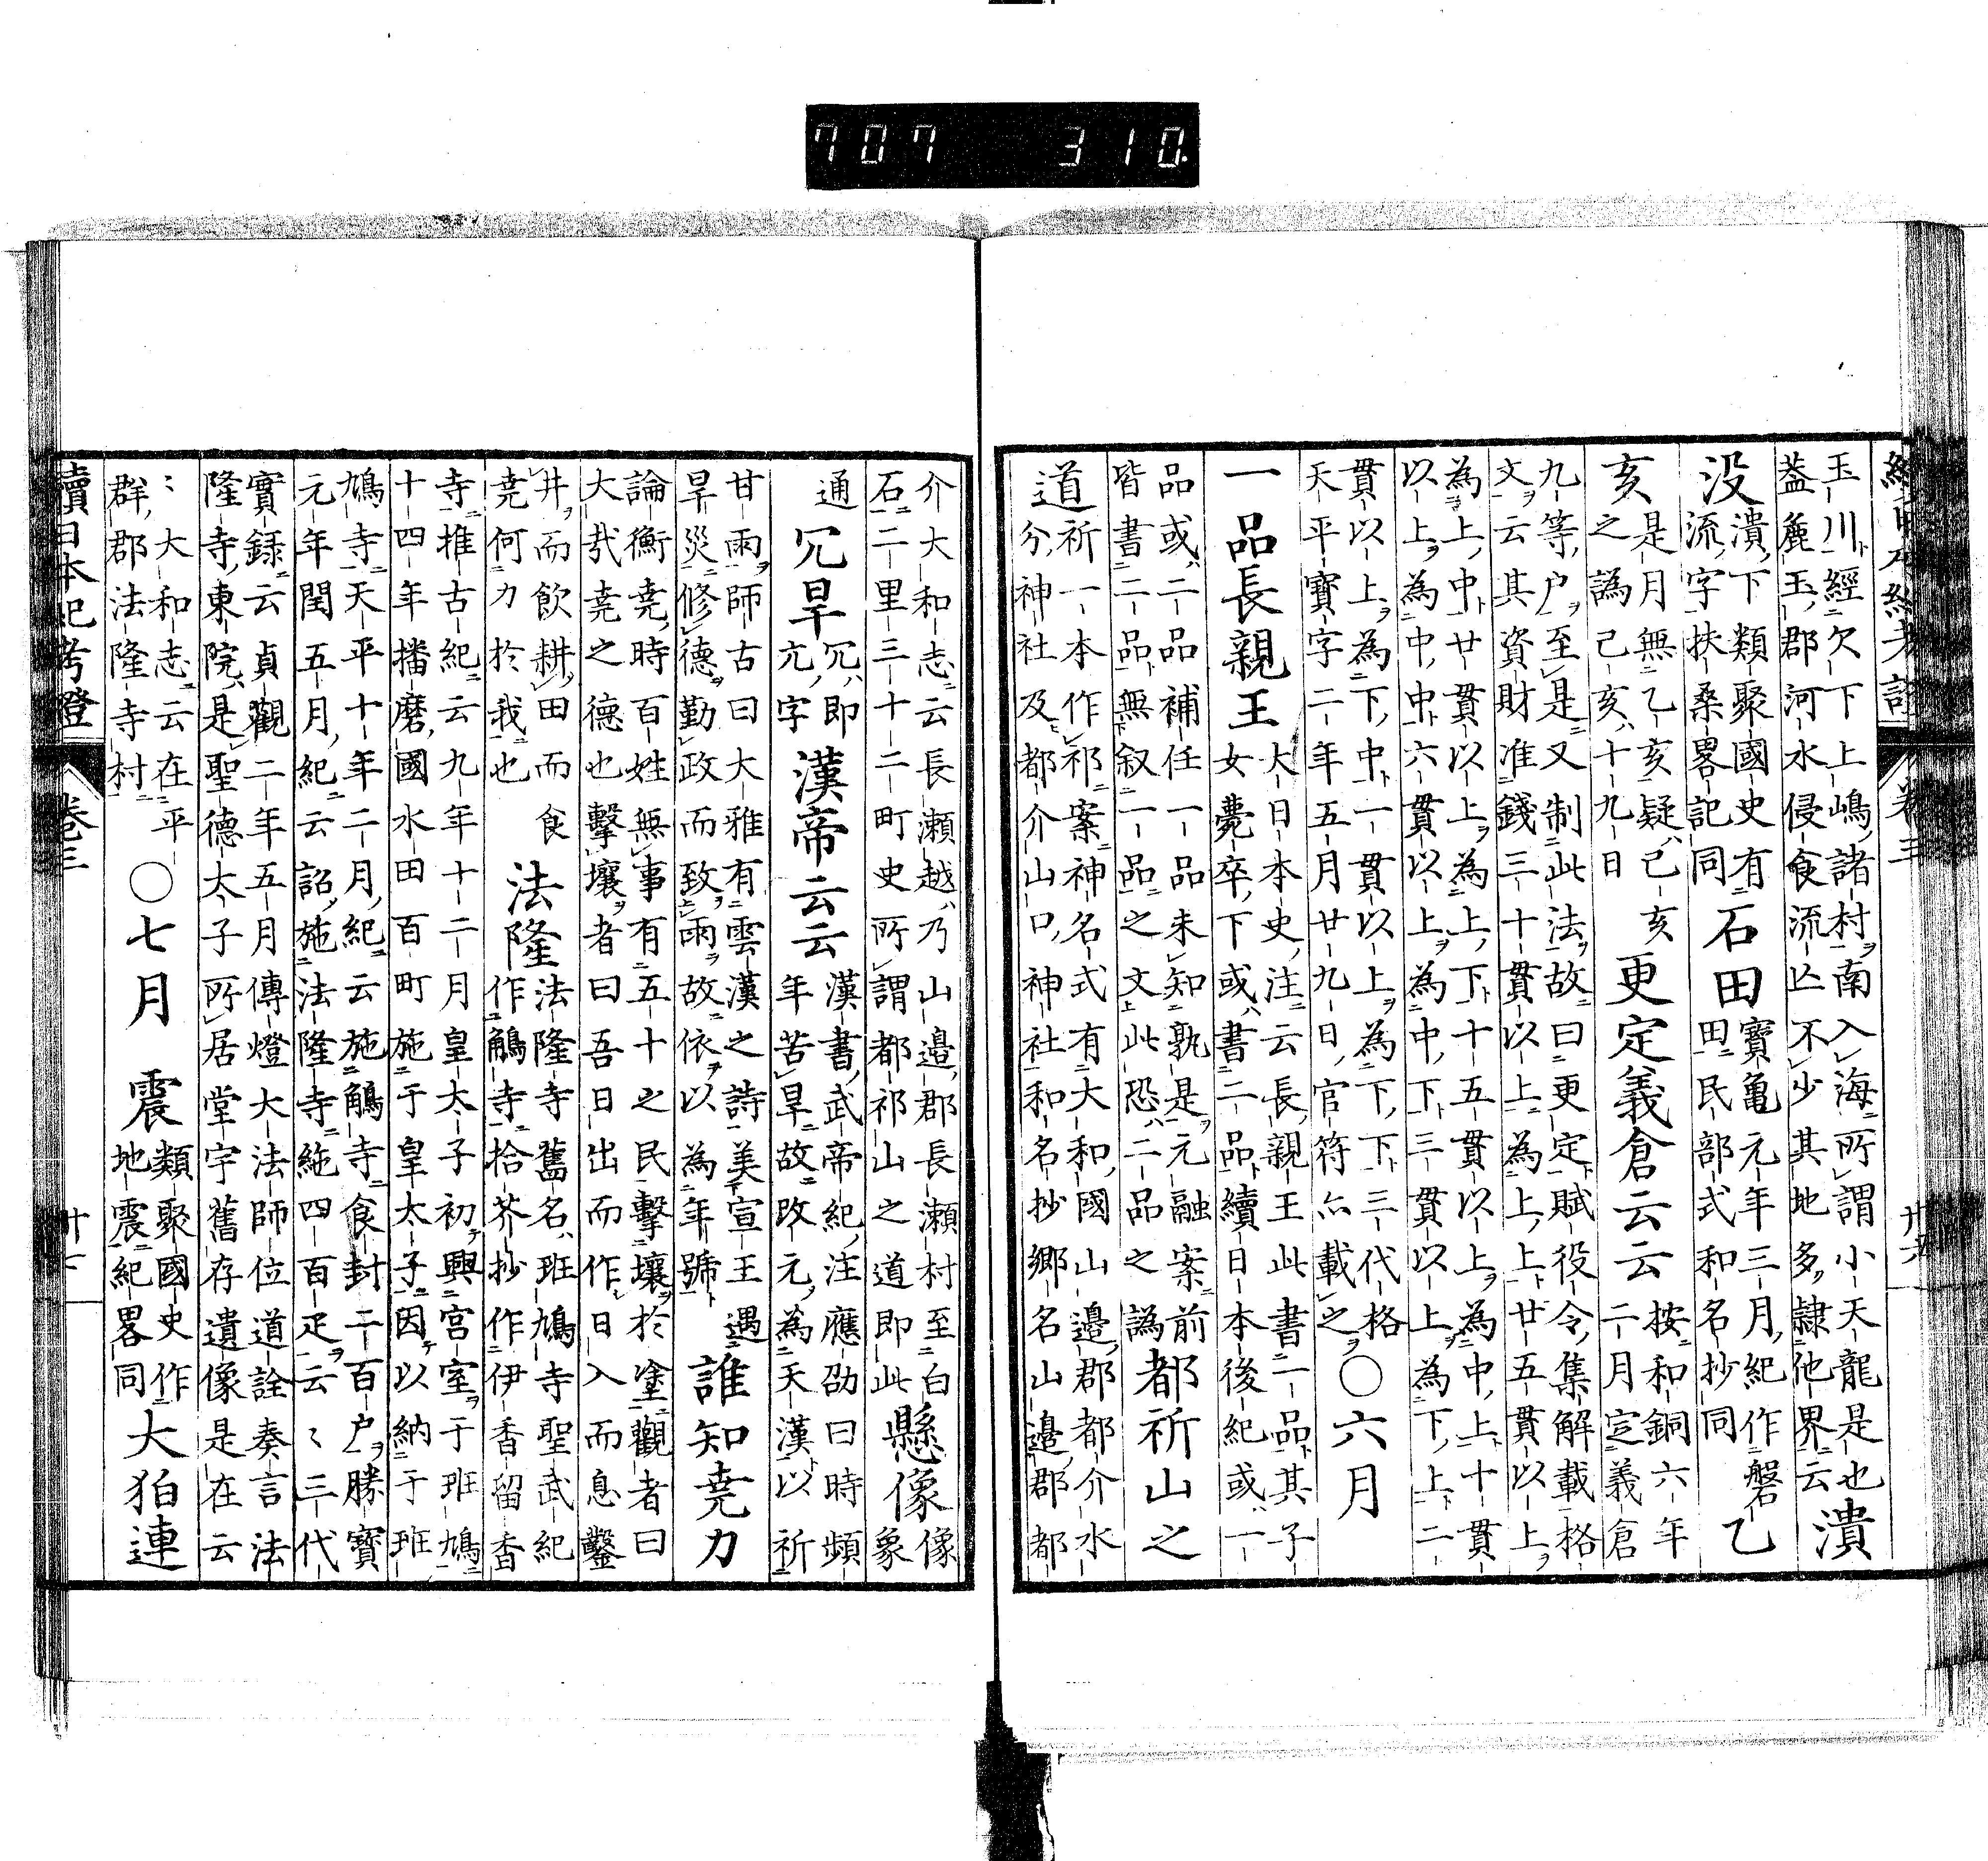 707 310
卷三
玉川經欠下上嶋諸村南入海所謂小天龍是也
蓋麁玉郡河水侵食流亾不少其地多隷他界云潰
没潰下類聚國史有
流字扶桑畧記同石田寶亀元年三月紀作磐
田民部式和名抄同乙
亥是月無乙亥疑己亥
之譌己亥十九日更定義倉云云按和銅六年
二月定義倉
九等户至是又制此法故曰更定賦役令集解載格
文云其資財准錢三十貫以上為上上廿五貫以上
為上中廿貫以上為上下十五貫以上為中上十貫
以上為中中六貫以上為中下三貫以上為下上二
貫以上為下中一貫以上為下下三代格
天平寶字二年五月廿九日官符亦載之○六月
一品長親王大日本史注云長親王此書二品其子
女薨卒下或書二品續日本後紀或一
品或二品補任一品未知孰是元融案前
皆書二品無叙一品之文此恐二品之譌都祈山之
道祈一本作祁案神名式有大和國山邊郡都介水
分神社及都介山口神社和名抄郷名山邊郡都
介大和志云長瀬越乃山邉郡長瀬村至白
石二里三十二町史所謂都祁山之道即此懸像像
象
通冗旱冗即
亢字漢帝云云漢書武帝紀注應劭曰時頻
年苦旱故改元為天漢以祈
甘雨師古曰大雅有雲漢之詩美宣王遇
旱災修德勤政而致雨故依以為年號誰知尭力
論衡尭時百姓無事有五十之民擊壤於塗觀者曰
大㢤尭之德也擊壤者曰吾日出而作日入而息鑿
井而飲耕田而食
尭何力於我也法隆法隆寺舊名班鳩寺聖武紀
作鵤寺拾芥抄作伊香留香
寺推古紀云九年十二月皇太子初興宮室于班鳩
十四年播磨國水田百町施于皇太子因以納于班
鳩寺天平十年二月紀云施鵤寺食封二百户勝寳
元年閏五月紀云詔施法隆寺絁四百疋云〻三代
實録云貞觀二年五月傳燈大法師位道詮奏言法
隆寺東院是聖德太子所居堂宇舊存遺像是在云
〻大和志云在平
群郡法隆寺村○七月震類聚國史作
地震紀畧同大狛連
續日本紀考證 卷三